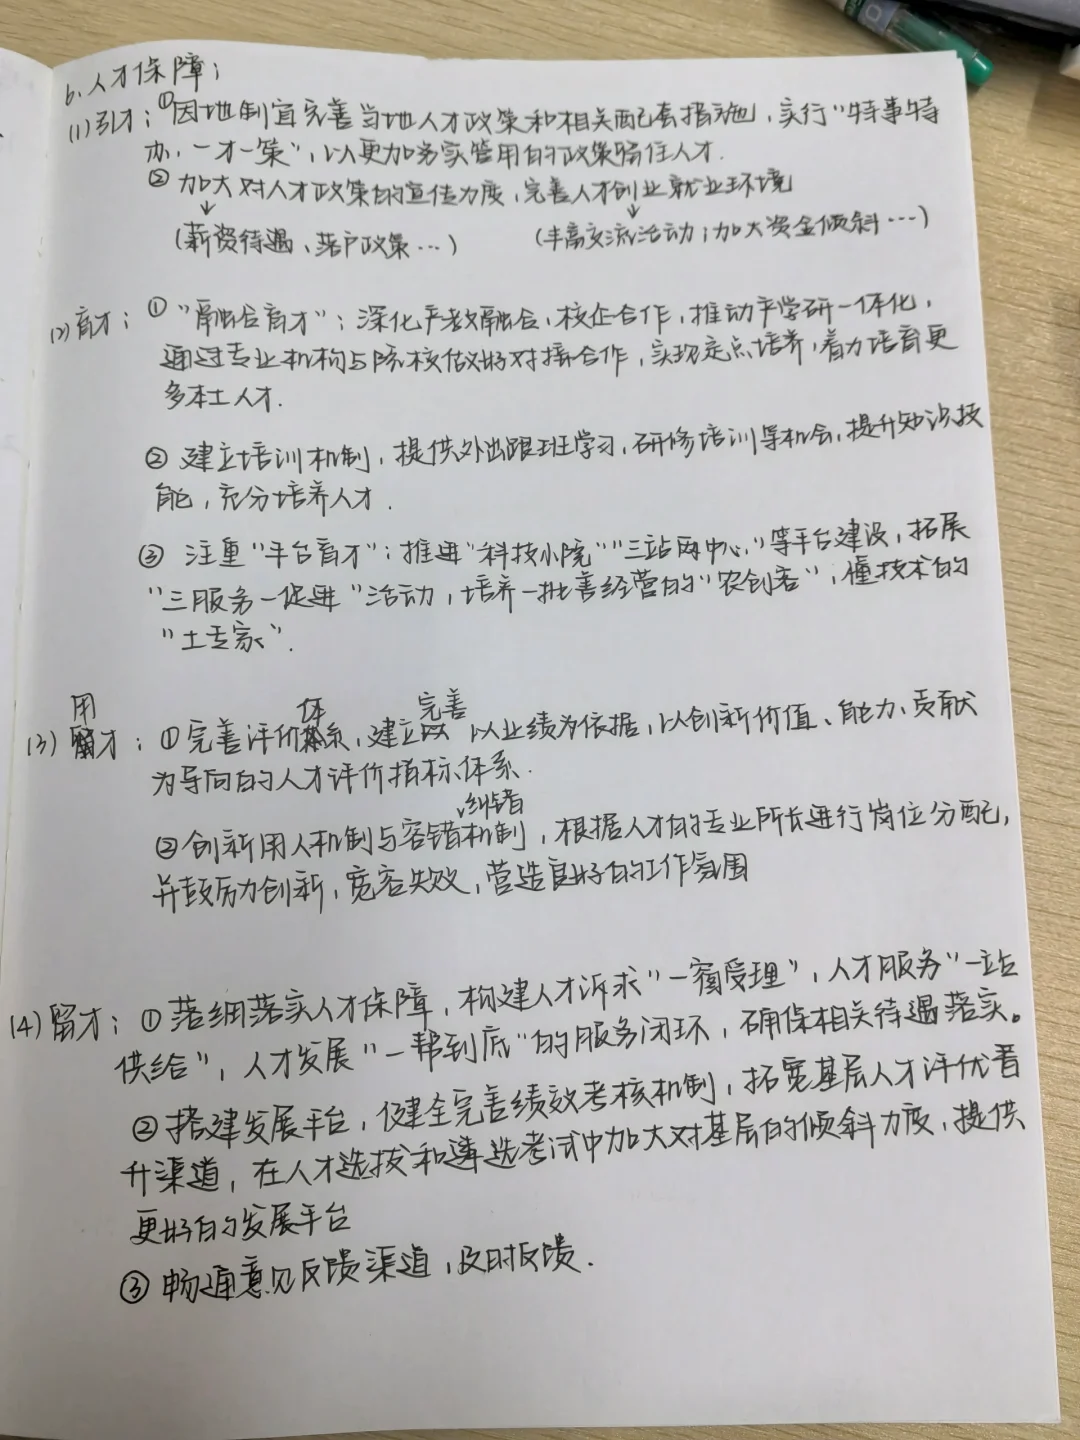 6.人才保障;
(1)引才:①因地制宜完善当地人才政策和相关配套措施,实行"特事特
办,一才一策",以更加务实管用的政策留住人才.
②加大对人才政策的宣传力度,完善人才创业就业环境
(薪资待遇、落户政策…) (丰富交流活动;加大资金倾斜…)
(2)育才:①"融合育才":深化产教融合,校企合作,推动产学研一体化,
通过专业机构与院校做好对接合作,实现定点培养,着力培育更
多本土人才.
②建立培训机制,提供外出跟班学习,研修培训等机会,提升知识技
能,充分培养人才.
③注重"平台育才":推进"科技小院""三站两中心"等平台建设,拓展
"三服务一促进"活动,培养一批善经营的"农创客",懂技术的
"土专家".
(3)用才:①完善评价体系,建立完善以业绩为依据,以创新价值、能力、贡献
为导向的人才评价指标体系.
②创新用人机制与容错、纠错机制,根据人才的专业所长进行岗位分配,
并鼓励创新,宽容失败,营造良好的工作氛围
(4)留才:①落细落实人才保障,构建人才诉求"一窗受理",人才服务"一站
供给",人才发展"一帮到底"的服务闭环,确保相关待遇落实。
②搭建发展平台,健全完善绩效考核机制,拓宽基层人才评优晋
升渠道,在人才选拔和遴选考试中加大对基层的倾斜力度,提供
更好的发展平台
③畅通意见反馈渠道,及时反馈.